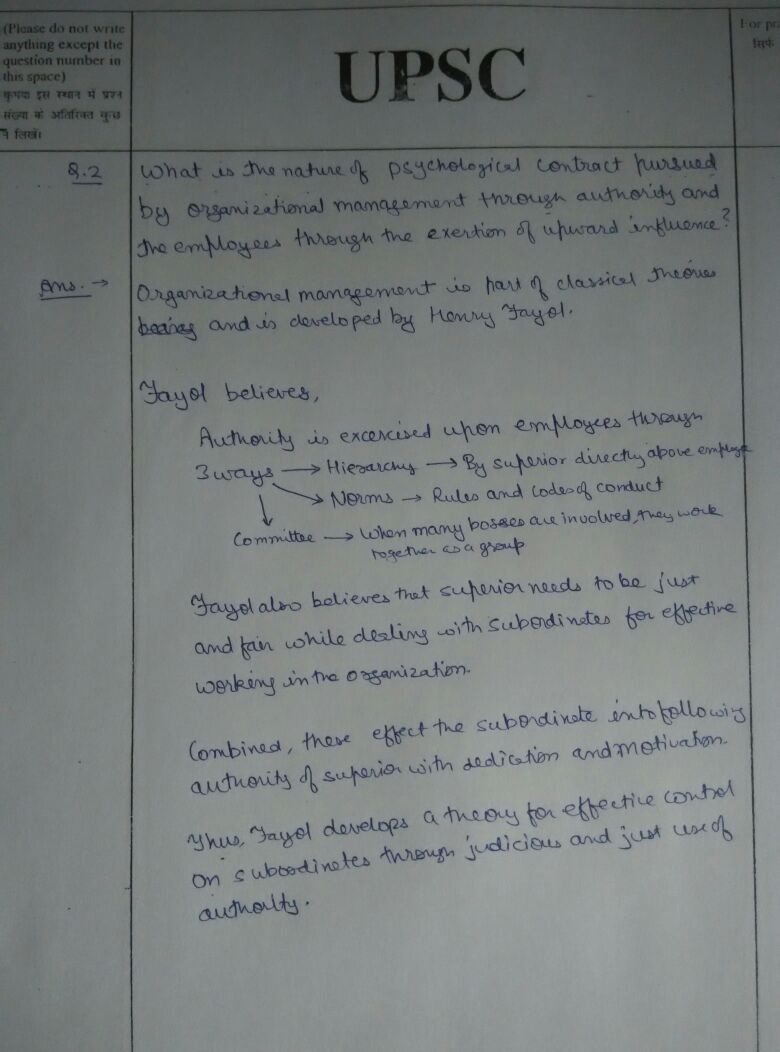 (Please do not write
anything except the
question number in
this space)
कृपया इस स्थान में प्रश्न
संख्या के अतिरिक्त कुछ
न लिखें।
UPSC
For
Q.2
What is the nature of psychological contract pursued
by organizational management through authority and
the employees through the exertion of upward influence?
Ans. →
Organizational management is part of classical theories
and is developed by Henry Fayol.
Fayol believes,
Authority is excercised upon employees through
3 ways → Hierarchy → By superior directly above
→ Norms → Rules and codes of conduct
Committee → When many bosses are involved, they work
together as a group
Fayol also believes that superior needs to be just
and fair while dealing with subordinates for effective
working in the organization.
Combined, these effect the subordinate into following
authority of superior with dedication and motivation.
Thus, Fayol develops a theory for effective control
on subordinates through judicious and just use of
authority.